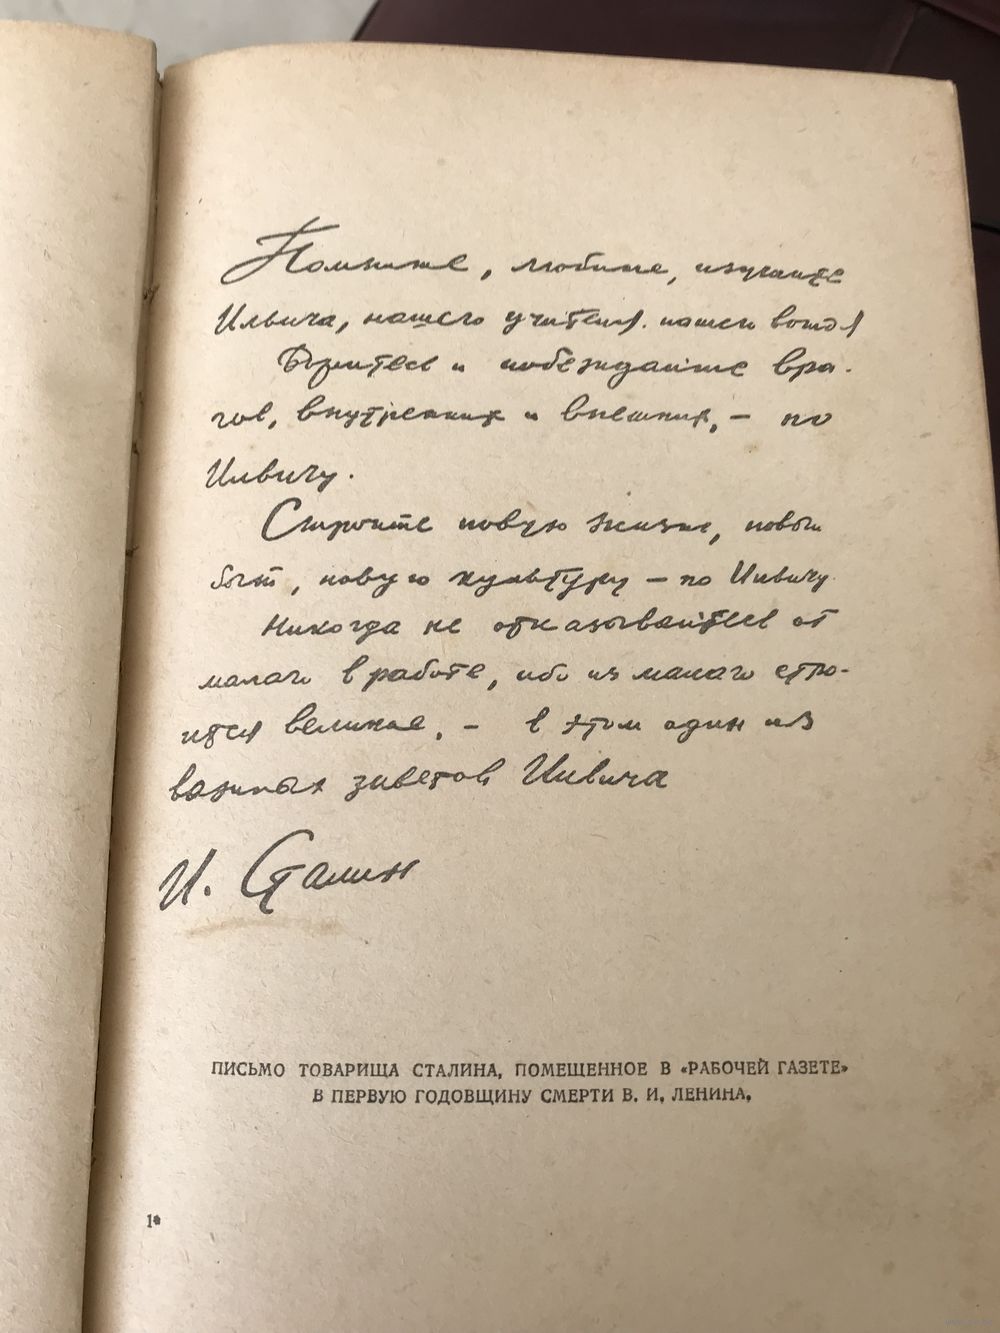 Помните, любите, изучайте
Ильича, нашего учителя, нашего вождя
Боритесь и побеждайте вра-
гов, внутренних и внешних, – по
Ильичу.
Стройте новую жизнь, новый
быт, новую культуру – по Ильичу.
Никогда не отказывайтесь от
малого в работе, ибо из малого стро-
ится великое, – в этом один из
важных заветов Ильича
И. Сталин
ПИСЬМО ТОВАРИЩА СТАЛИНА, ПОМЕЩЕННОЕ В «РАБОЧЕЙ ГАЗЕТЕ»
В ПЕРВУЮ ГОДОВЩИНУ СМЕРТИ В. И. ЛЕНИНА.
1*